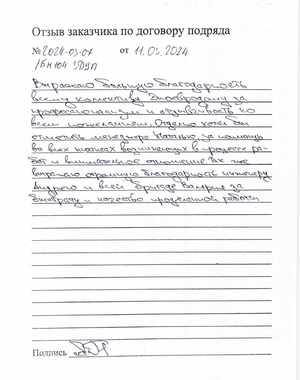 Отзыв заказчика по договору подряда
№ 2024-03-07 от 11.03.2024
Выражаю большую благодарность
всему коллективу за
профессионализм и отзывчивость ко
всем пожеланиям. Отдельно хотел бы
отметить менеджера за помощь
во всех этапах возникающих в процессе ра-
бот и внимательное отношение. Так же
выражаю огромную благодарность инженеру
Андрею и всей бригаде Валерия за
быстроту и качество проделанной работы
Подпись